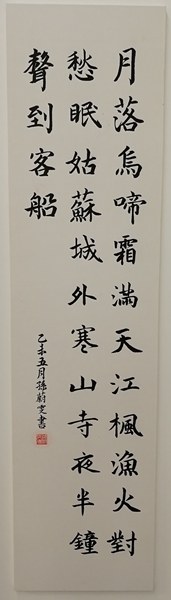 月落烏啼霜滿天江楓漁火對
愁眠姑蘇城外寒山寺夜半鐘
聲到客船
乙未五月孫蔚雯書